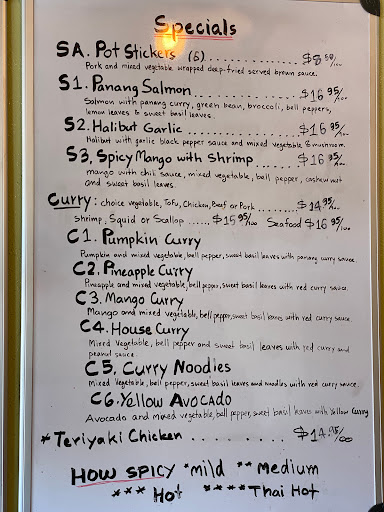 Specials
SA. Pot Stickers (5) ............... $8 50/00
Pork and mixed vegetable wrapped deep-fried served brown sauce.
S1. Panang Salmon ............ $16 95/00
Salmon with panang curry, green bean, broccoli, bell peppers,
lemon leaves & sweet basil leaves.
S2. Halibut Garlic ............. $16 95/00
Halibut with garlic black pepper sauce and mixed vegetable & mushroom.
S3. Spicy Mango with Shrimp ..... $16 95/00
mango with chili sauce, mixed vegetable, bell pepper, cashew nut
and sweet basil leaves.
Curry: choice vegetable, Tofu, Chicken, Beef or Pork .......... $14 95/00
shrimp, Squid or Scallop ...... $15 95/00 Seafood $16 95/00
C1. Pumpkin Curry
Pumpkin and mixed vegetable, bell pepper, sweet basil leaves with panang curry sauce.
C2. Pineapple Curry
Pineapple and mixed vegetable, bell pepper, sweet basil leaves with red curry sauce.
C3. Mango Curry
Mango and mixed vegetable, bell pepper, sweet basil leaves with red curry sauce.
C4. House Curry
Mixed vegetable, bell pepper and sweet basil leaves with red curry and
peanut sauce.
C5. Curry Noodles
Mixed vegetable, bell pepper, sweet basil leaves and noodles with red curry sauce.
C6. Yellow Avocado
Avocado and mixed vegetable, bell pepper, sweet basil leaves with Yellow Curry
*Teriyaki Chicken .......... $14.95/00
HOW SPICY *mild **Medium
*** Hot ****Thai Hot